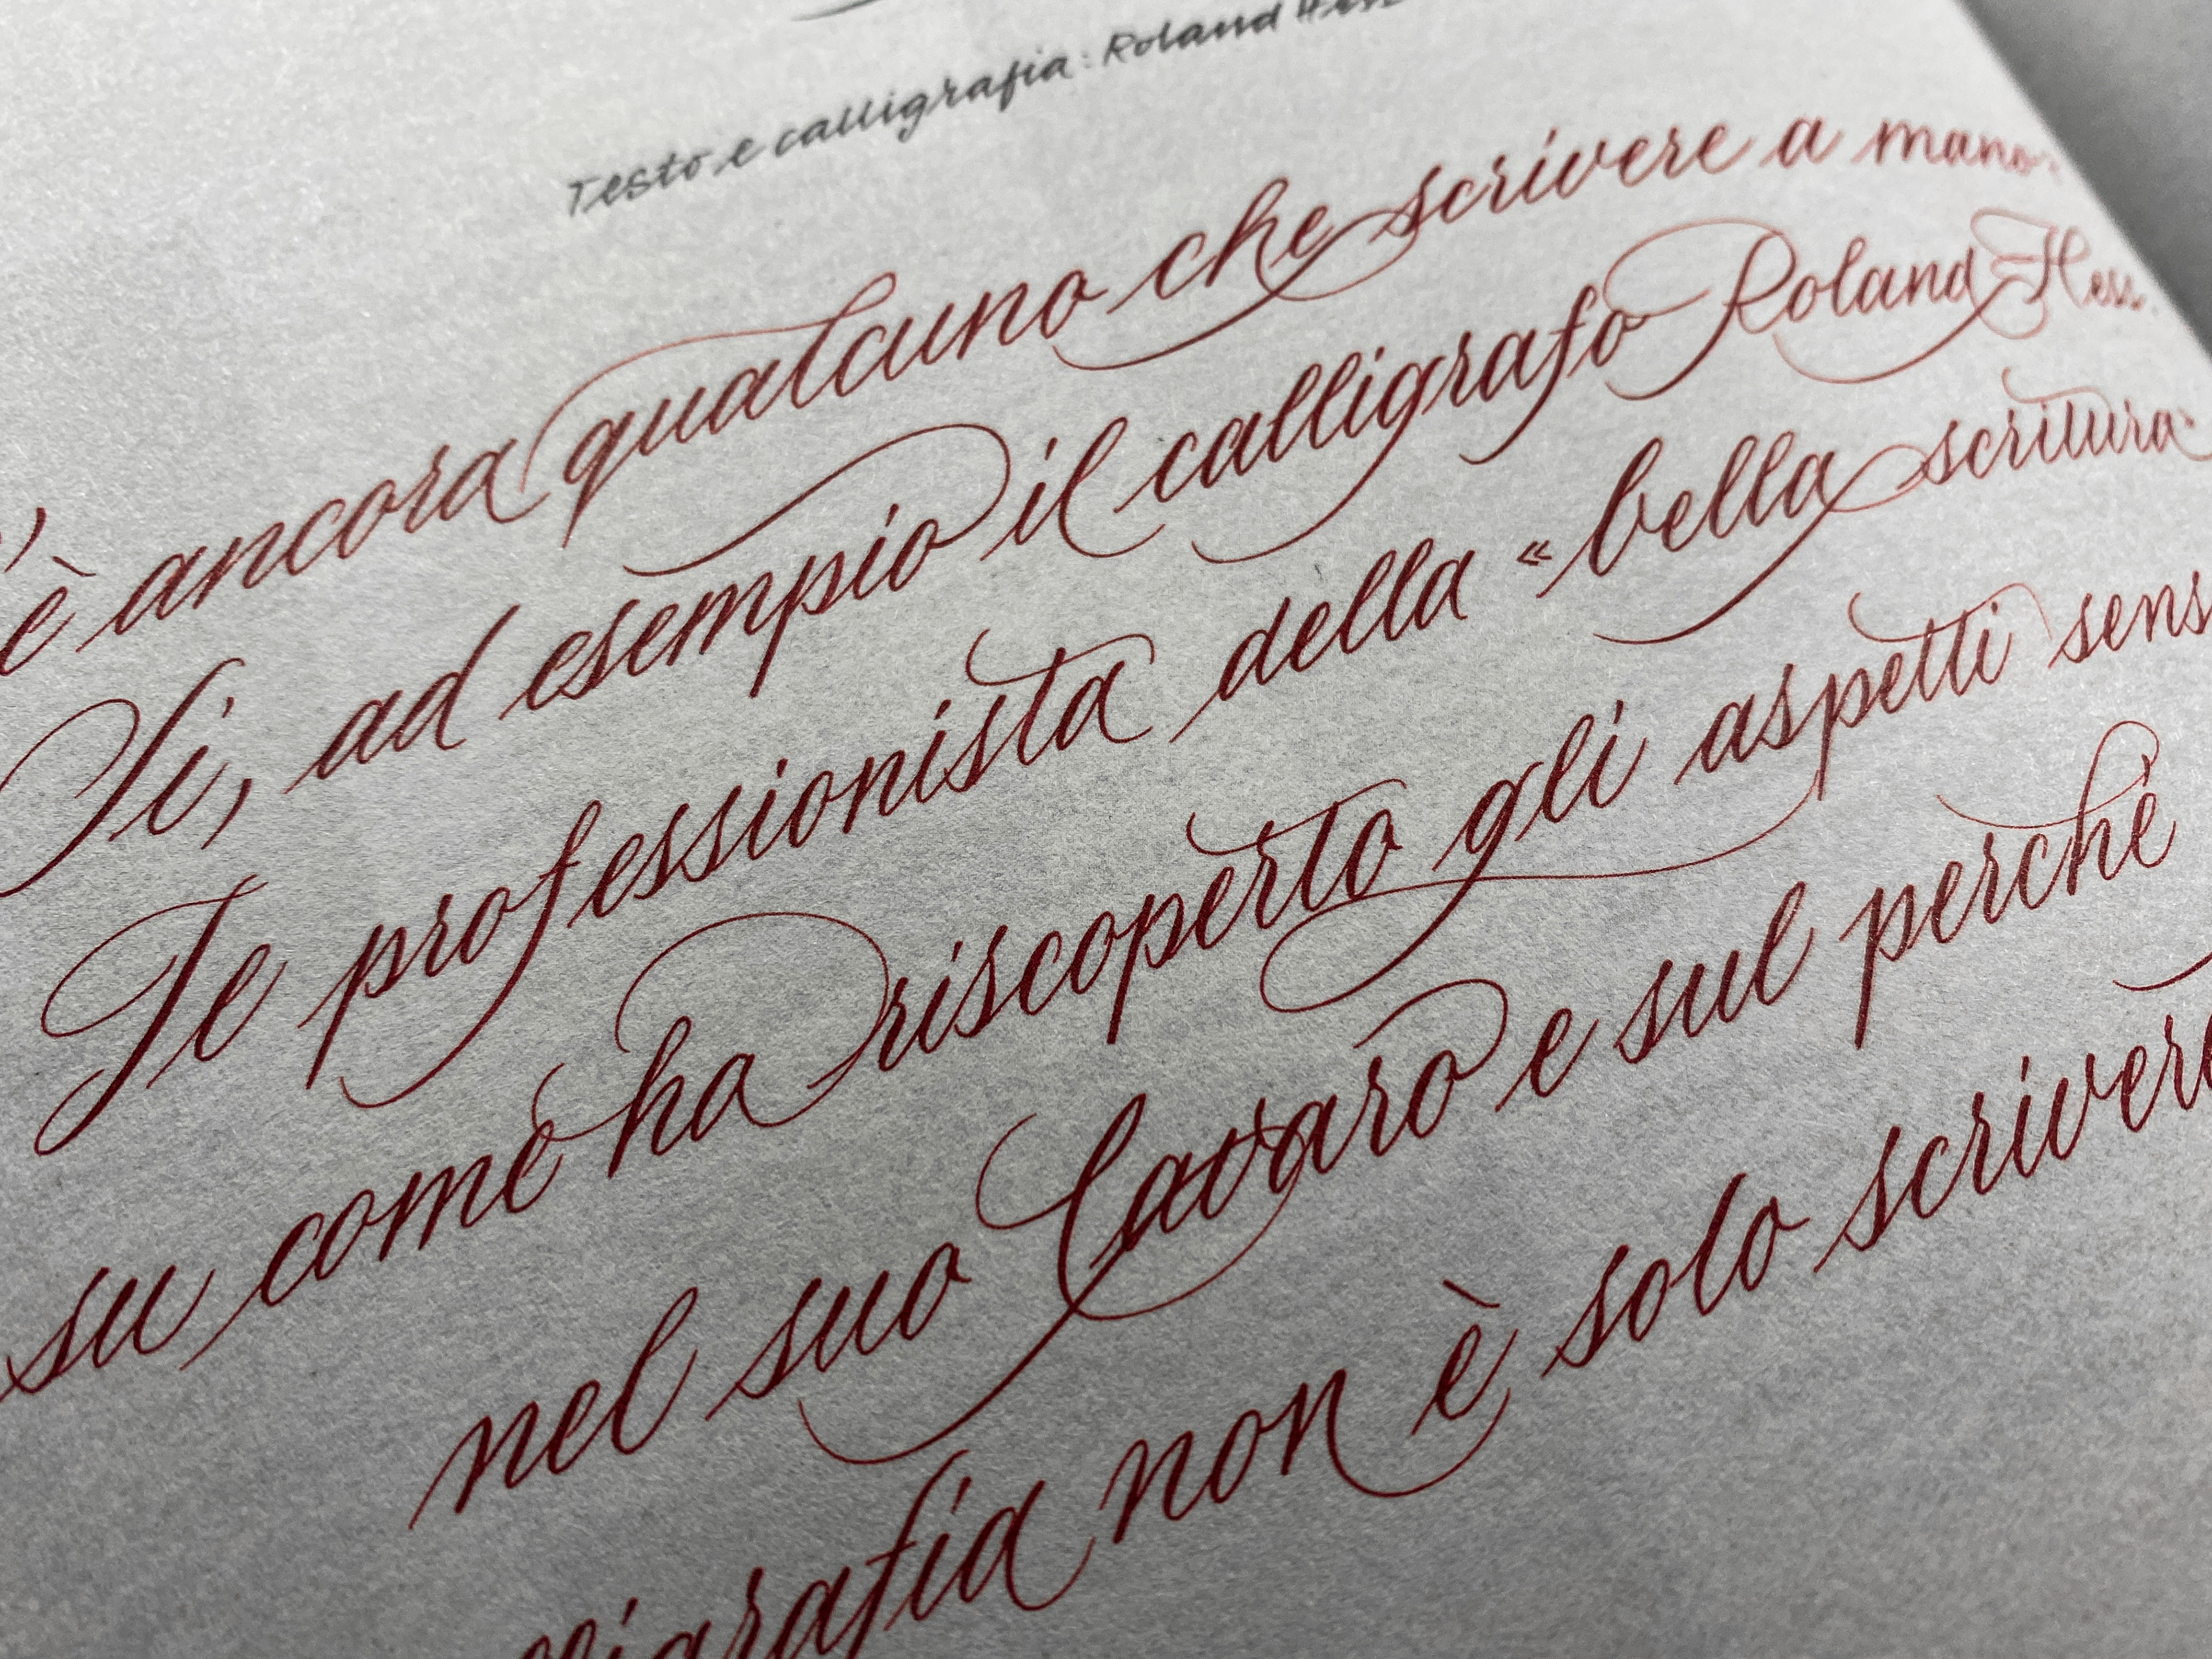 Testo e calligrafia: Roland Hess
è ancora qualcuno che scrivere a mano
Si, ad esempio il calligrafo Roland Hess.
Te professionista della «bella scrittura»
su come ha riscoperto gli aspetti sens
nel suo Lavaro e sul perché
lligrafia non è solo scrivere